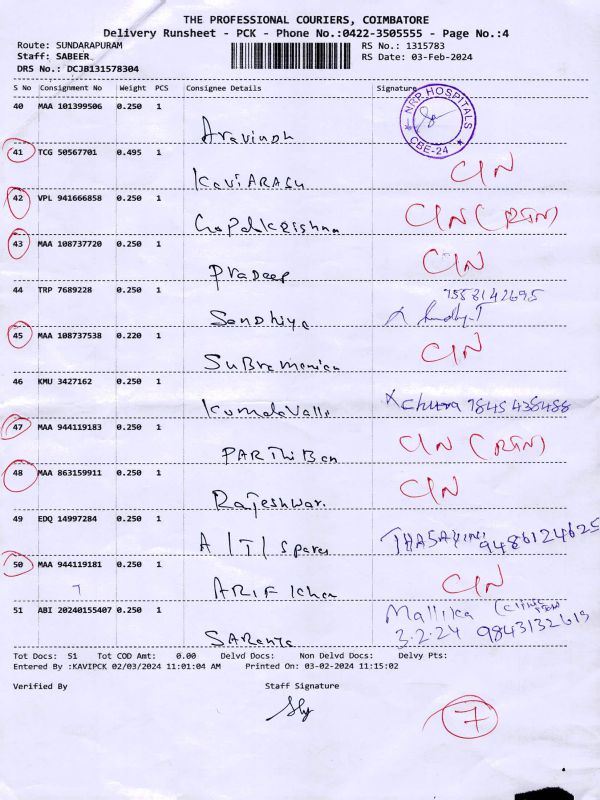 THE PROFESSIONAL COURIERS, COIMBATORE
Delivery Runsheet - PCK - Phone No.:0422-3505555 - Page No.:4
Route: SUNDARAPURAM RS No.: 1315783
Staff: SABEER RS Date: 03-Feb-2024
DRS No.: DCJB131578304
S No Consignment No Weight PCS Consignee Details Signature
40 MAA 101399506 0.250 1
NRP HOSPITALS CBE-24
Aravindh
41 TCG 50567701 0.495 1
CIN
KaviARASu
42 VPL 941666858 0.250 1
CIN (RTN)
Gopalkrishna
43 MAA 108737720 0.250 1
CIN
Pradeep
44 TRP 7689228 0.250 1
7558142695
Sandhiya
45 MAA 108737538 0.220 1
CIN
SuBramanian
46 KMU 3427162 0.250 1
Chitra 7845438488
KamalaValli
47 MAA 944119183 0.250 1
CIN (RTN)
PARThiBan
48 MAA 863159911 0.250 1
CIN
Rajeshwari
49 EDQ 14997284 0.250 1
9486124625
A/T/Spares
50 MAA 944119181 0.250 1
CIN
ARIF Khan
51 ABI 20240155407 0.250 1
Mallika
3.2.24 9843132619
Tot Docs: 51 Tot COD Amt: 0.00 Delvd Docs: Non Delvd Docs: Delvy Pts:
Entered By :KAVIPCK 02/03/2024 11:01:04 AM Printed On: 03-02-2024 11:15:02
Verified By Staff Signature
7